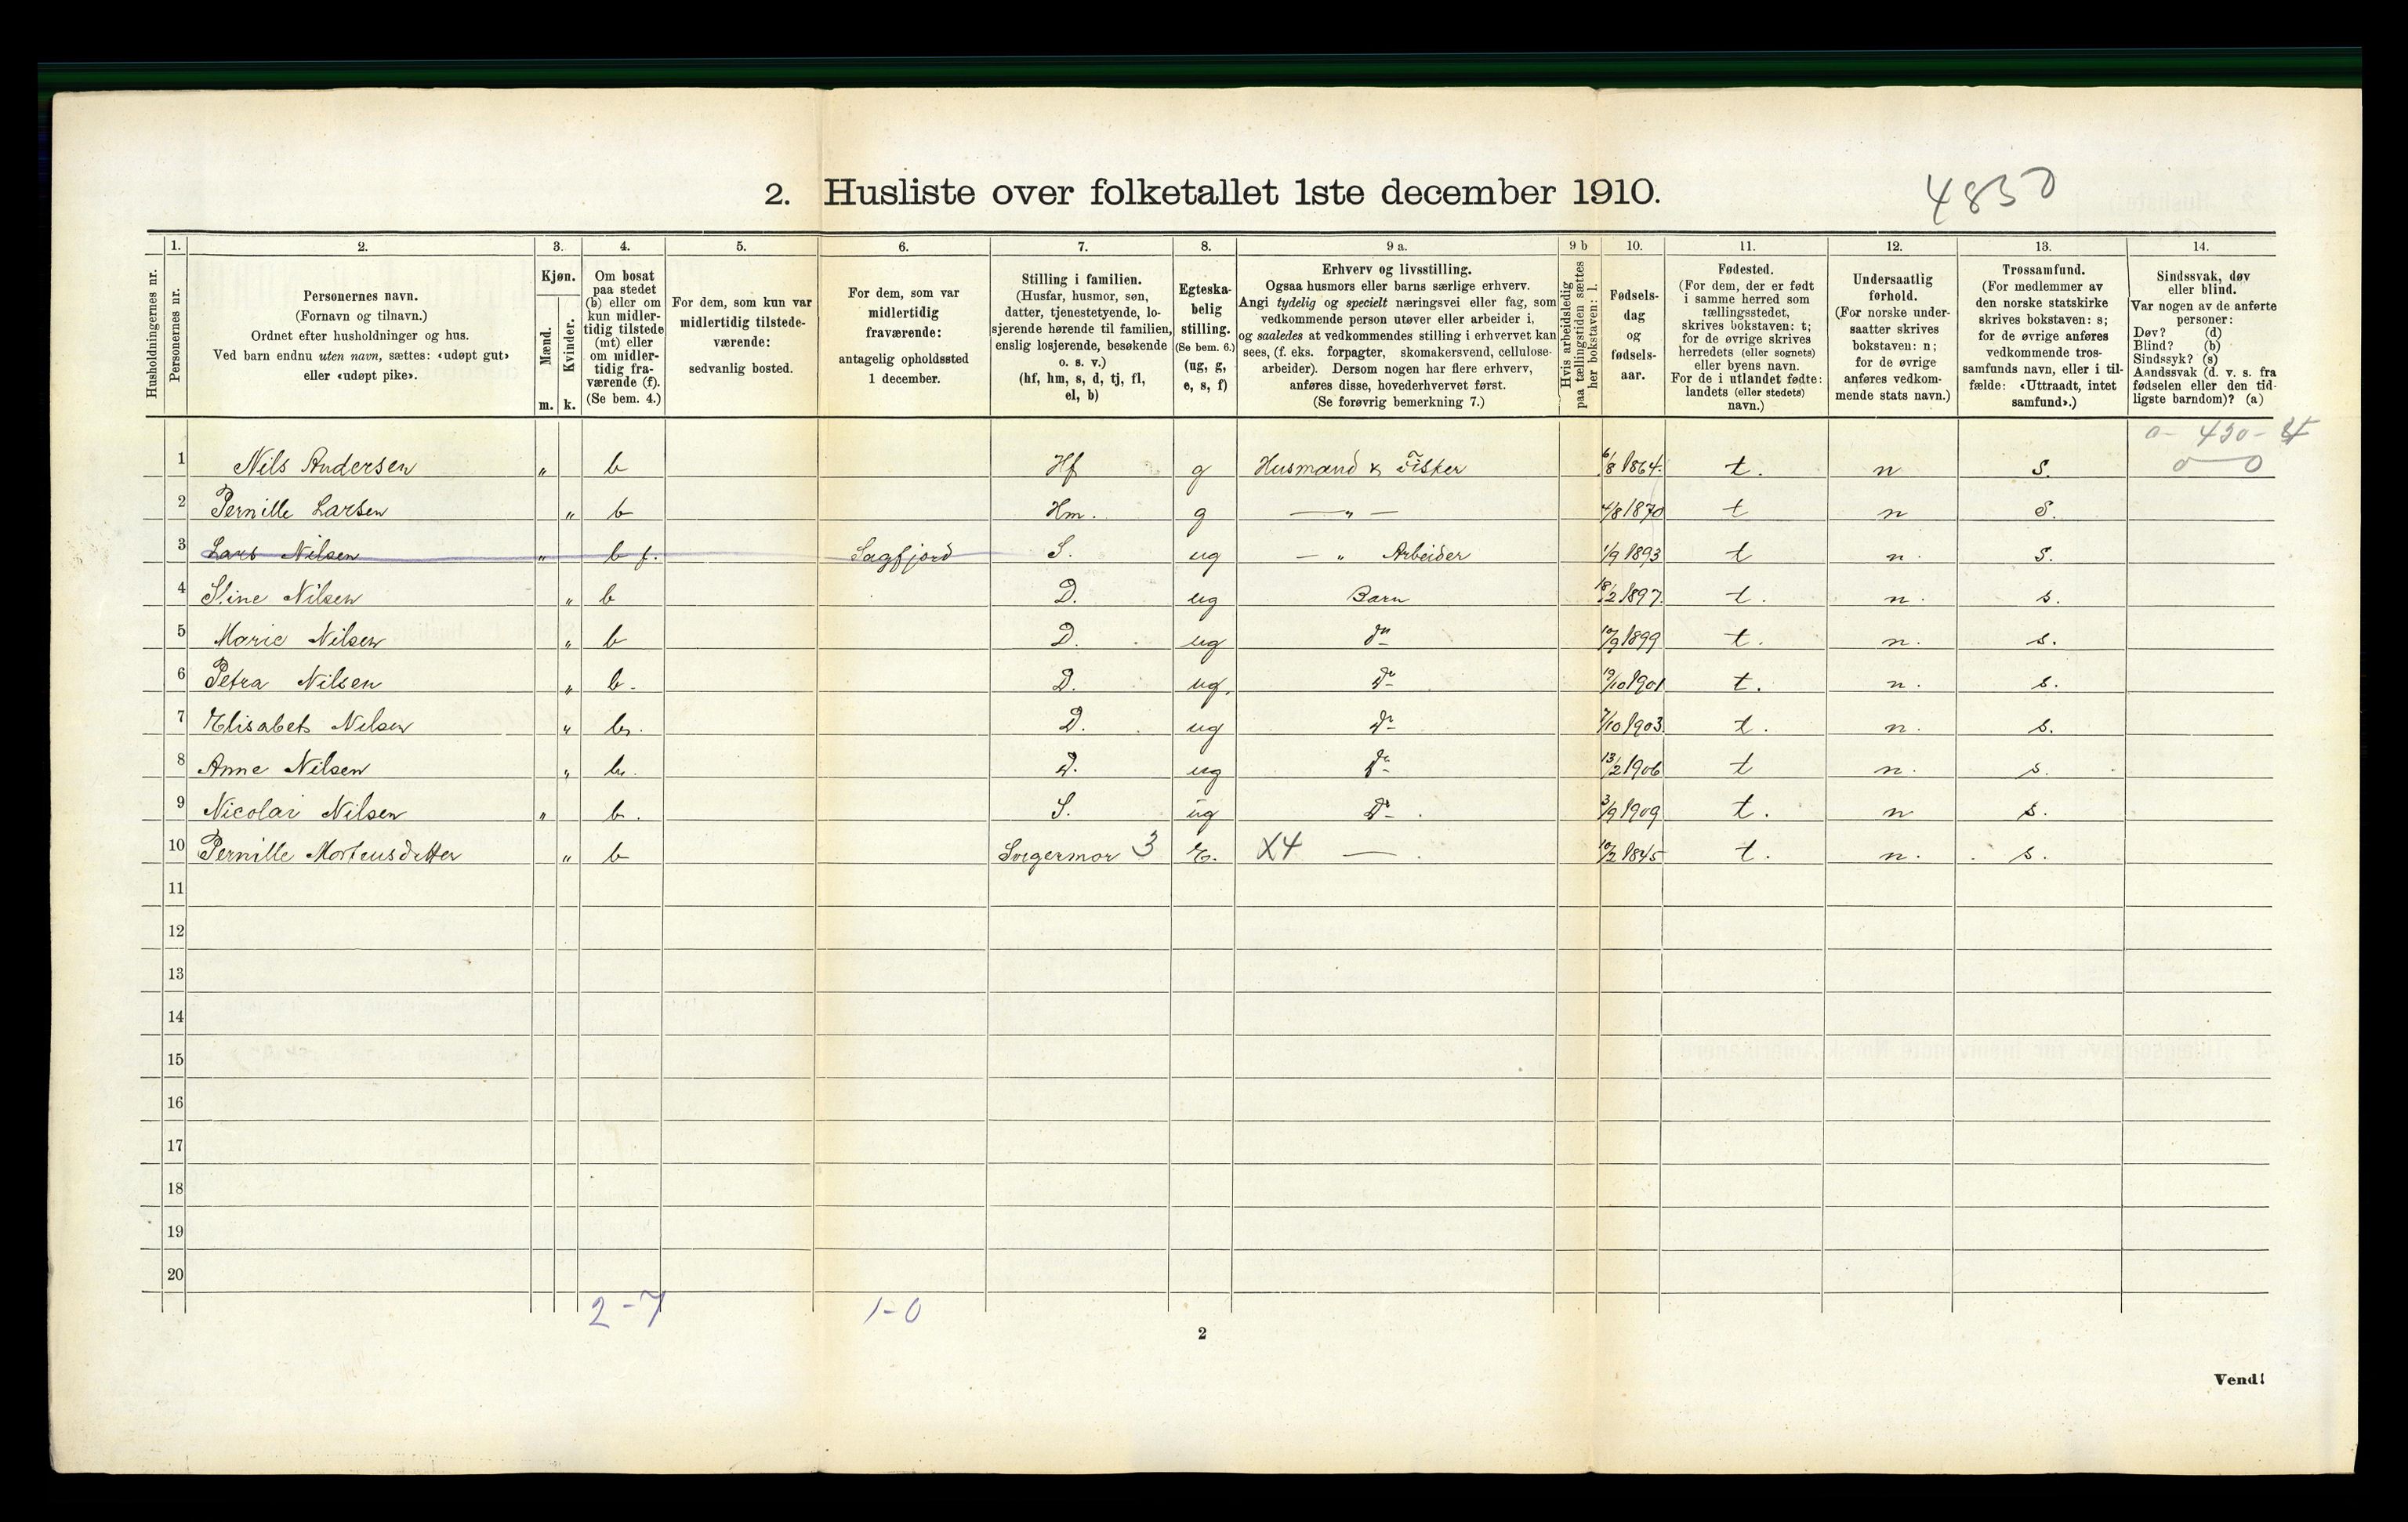 2. Husliste over folketallet 1ste december 1910.
4830
Husholdningernes nr.
1. Personernes nr.
2. Personernes navn.
(Fornavn og tilnavn.)
Ordnet efter husholdninger og hus.
Ved barn endnu uten navn, sættes: «udøpt gut»
eller «udøpt pike».
3. Kjøn.
Mænd. m.
Kvinder. k.
4. Om bosat
paa stedet
(b) eller om
kun midler-
tidig tilstede
(mt) eller
om midler-
tidig fra-
værende (f).
(Se bem. 4.)
5. For dem, som kun var
midlertidig tilstede-
værende:
sedvanlig bosted.
6. For dem, som var
midlertidig
fraværende:
antagelig opholdssted
1 december.
7. Stilling i familien.
(Husfar, husmor, søn,
datter, tjenestetyende, lo-
sjerende hørende til familien,
enslig losjerende, besøkende
o. s. v.)
(hf, hm, s, d, tj, fl,
el, b)
8. Egteska-
belig
stilling.
(Se bem. 6.)
(ug, g,
e, s, f)
9 a. Erhverv og livsstilling.
Ogsaa husmors eller barns særlige erhverv.
Angi tydelig og specielt næringsvei eller fag, som
vedkommende person utøver eller arbeider i,
og saaledes at vedkommendes stilling i erhvervet kan
sees, (f. eks. forpagter, skomakersvend, cellulose-
arbeider). Dersom nogen har flere erhverv,
anføres disse, hovederhvervet først.
(Se forøvrig bemerkning 7.)
9 b Hvis arbeidsledig
paa tællingstiden sættes
her bokstaven: l.
10. Fødsels-
dag
og
fødsels-
aar.
11. Fødested.
(For dem, der er født
i samme herred som
tællingsstedet,
skrives bokstaven: t;
for de øvrige skrives
herredets (eller sognets)
eller byens navn.
For de i utlandet fødte:
landets (eller stedets)
navn.)
12. Undersaatlig
forhold.
(For norske under-
saatter skrives
bokstaven: n;
for de øvrige
anføres vedkom-
mende stats navn.)
13. Trossamfund.
(For medlemmer av
den norske statskirke
skrives bokstaven: s;
for de øvrige anføres
vedkommende tros-
samfunds navn, eller i til-
fælde: «Uttraadt, intet
samfund».)
14. Sindssvak, døv
eller blind.
Var nogen av de anførte
personer:
Døv? (d)
Blind? (b)
Sindssyk? (s)
Aandssvak (d. v. s. fra
fødselen eller den tid-
ligste barndom)? (a)
1 Nils Andersen " b Hf g Husmand & Fisker 6/8 1864. t. n s. 0 0
2 Pernille Larsen " b Hm. g — " — 4/8 1870 t n S.
3 Lars Nilsen " b f. Sagfjord S. ug — " Arbeider 1/9 1893 t n. s.
4 Stine Nilsen " b D. ug Barn 18/2 1897. t. n. s.
5 Marie Nilsen " b D. ug do 10/9 1899 t. n. s.
6 Petra Nilsen " b. D. ug. Do 19/10 1901 t. n. s.
7 Elisabet Nilsen " b. D. ug Do 7/10 1903. t. n. s.
8 Anne Nilsen " b. D. ug Do 13/2 1906 t n. s.
9 Nicolai Nilsen " b. S. ug Do 3/9 1909 t. n s.
10 Pernille Mortensdatter " b Svigermor 3 E. X4 — 10/2 1845 t. n. s.
11
12
13
14
15
16
17
18
19
20
2-7 1-0
2
Vend!